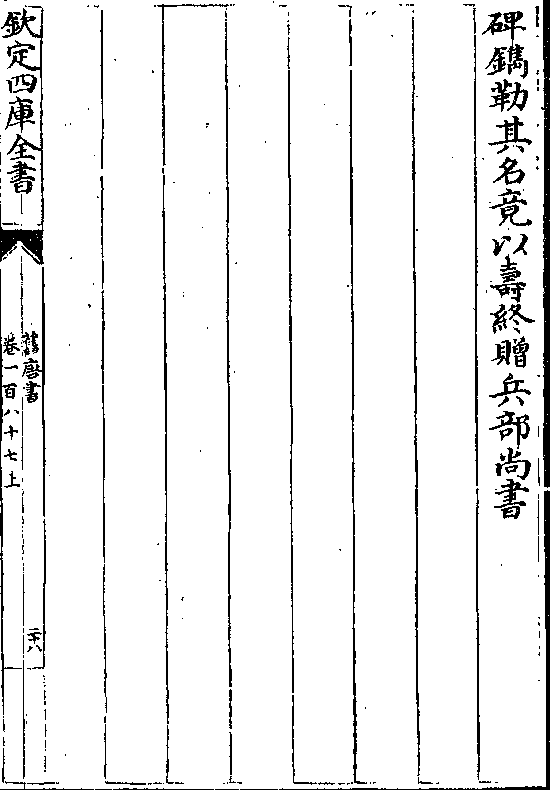 碑鐫勒其名竟以壽終贈兵部尚書
欽定四庫全書
舊唐書
卷一百八十七上
二十八